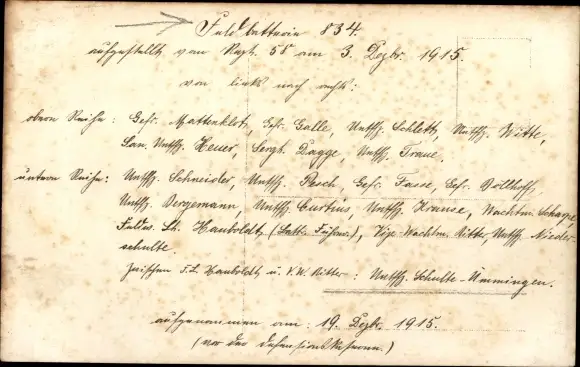 Feldbatterie 834.
aufgestellt vom Regt. 58 am 3. Dezbr. 1915.
von links nach rechts:
obere Reihe: Gefr. Mattenklot, Gefr. Galle, Untffz. Schlett, Untffz. Witte,
San. Untffz. Heuer, Sergt. Dagge, Untffz. Traue.
untere Reihe: Untffz. Schneider, Untffz. Pesch, Gefr. Fasse, Gefr. Bollhoff,
Untffz. Bergemann, Untffz. Curtius, Untffz. Krause, Wachtm. Scharpe
Feldw. Lt. Hauboldt (Battr. Führer.), Vize-Wachtm. Ritter, Untffz. Nieder-
schulte.
Zwischen F. L. Hauboldt u. V. W. Ritter: Untffz. Schulte-Ümmingen.
aufgenommen am: 19. Dezbr. 1915.
(vor der